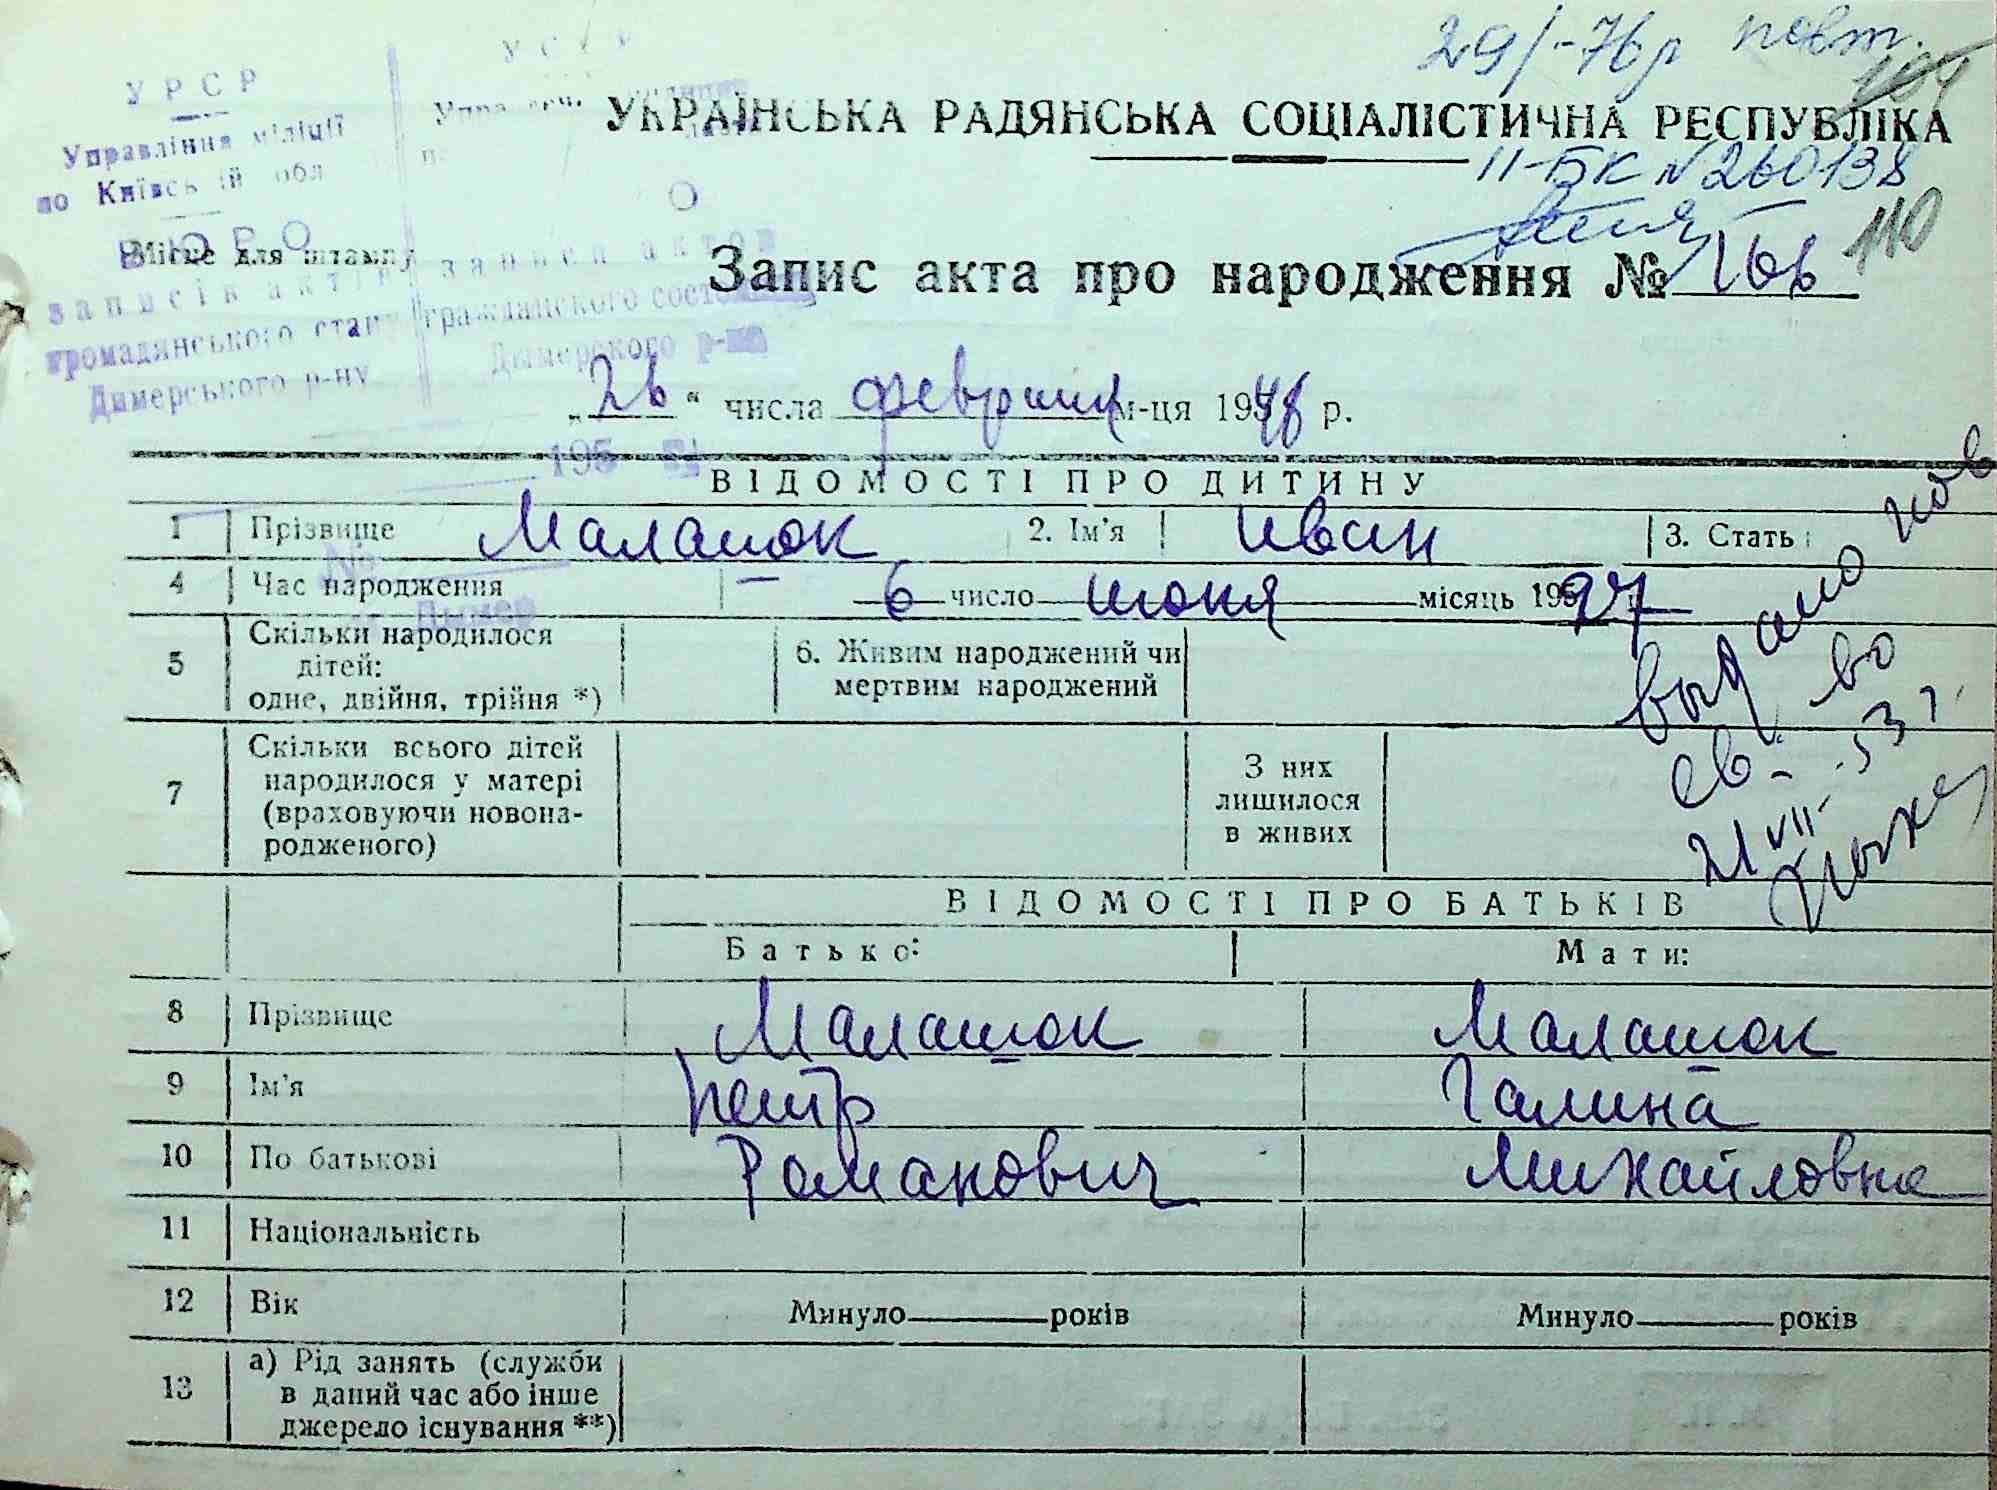 29/-76р повт.
104
УРСР
Управління міліції
по Київській обл
БЮРО
записів актів
громадянського стану
Димерського р-ну
записи актов
гражданского состояния
Дымерского р-на
195
№
Дымер
УКРАЇНСЬКА РАДЯНСЬКА СОЦІАЛІСТИЧНА РЕСПУБЛІКА
II-БК №260138
110
Місце для штампу
Запис акта про народження №
„26“ числа февраля м-ця 1948 р.
ВІДОМОСТІ ПРО ДИТИНУ
1 Прізвище Малашок 2. Ім'я Иван 3. Стать
4 Час народження 6 число июня місяць 1927
5 Скільки народилося дітей: одне, двійня, трійня *) 6. Живим народжений чи мертвим народжений
7 Скільки всього дітей народилося у матері (враховуючи новонародженого) З них лишилося в живих
выдано пов
св-во
21 VII-53 г.
ВІДОМОСТІ ПРО БАТЬКІВ
Батько: Мати:
8 Прізвище Малашок Малашок
9 Ім'я Петр Галина
10 По батькові Романович Михайловна
11 Національність
12 Вік Минуло років Минуло років
13 а) Рід занять (служби в даний час або інше джерело існування **)